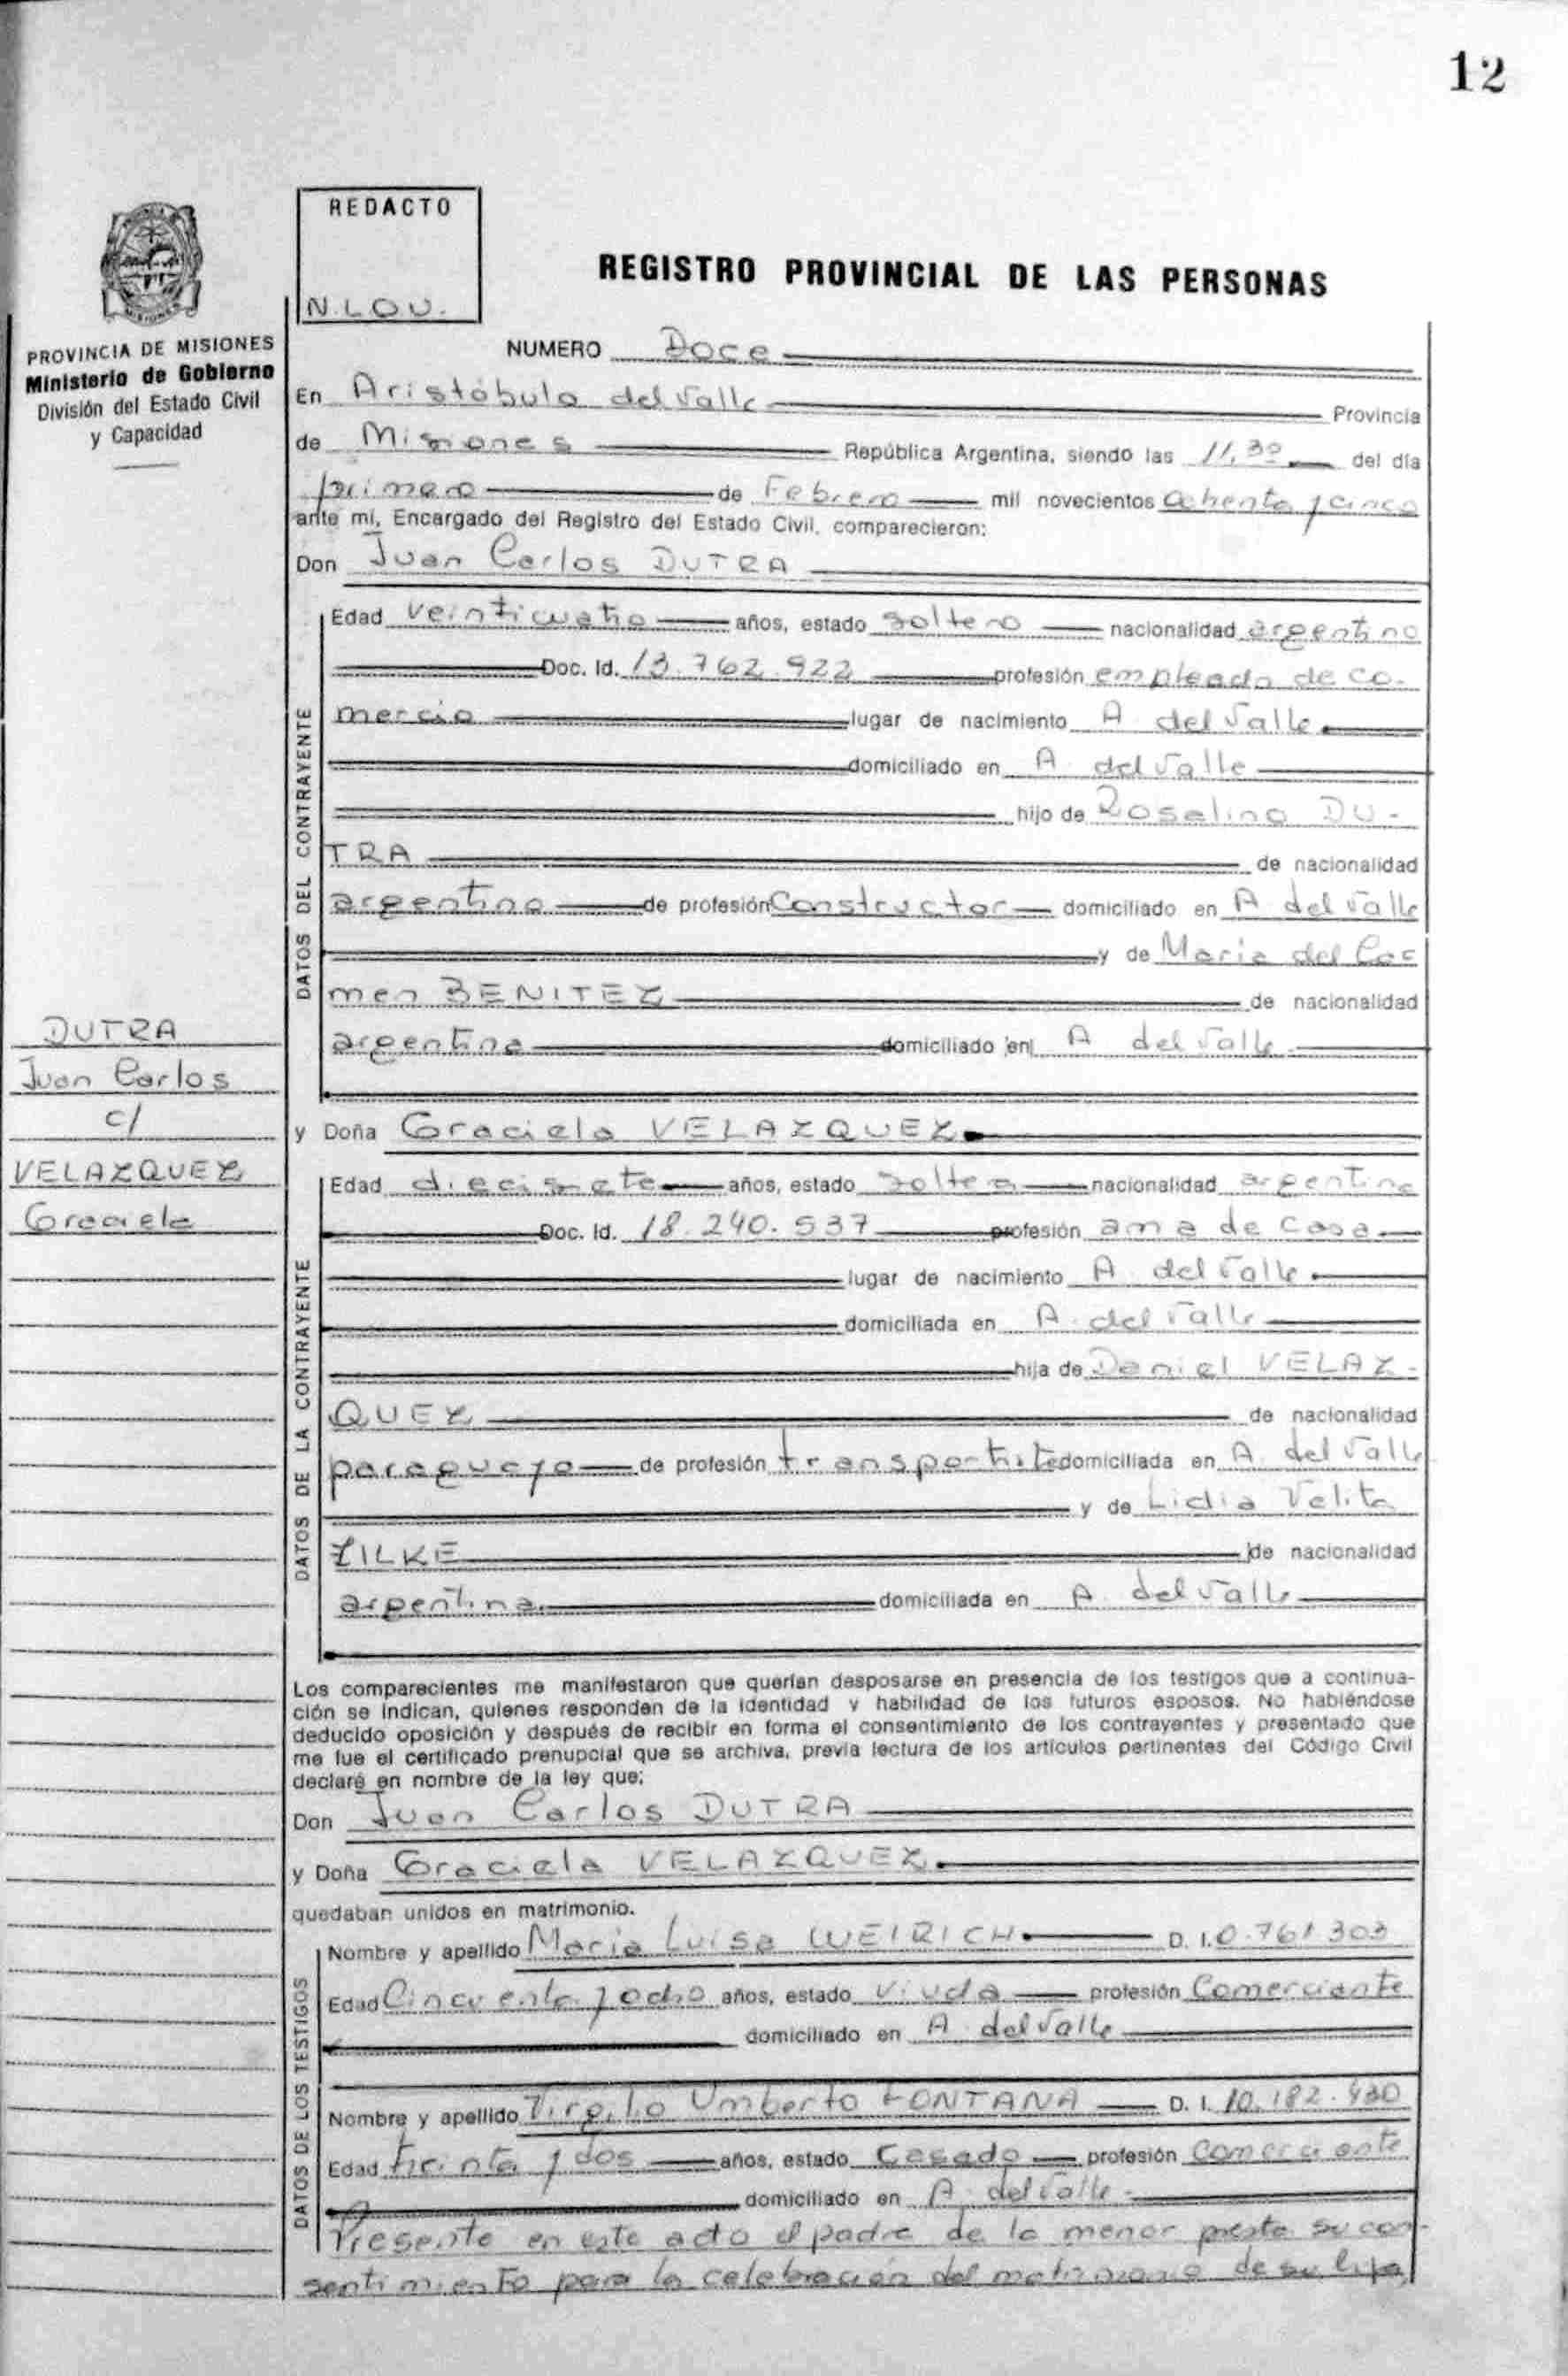 12
REDACTO
N.LOU.
REGISTRO PROVINCIAL DE LAS PERSONAS
MISIONES
PROVINCIA DE MISIONES
Ministerio de Gobierno
División del Estado Civil
y Capacidad
NUMERO Doce
En Aristóbulo del Valle Provincia
de Misiones República Argentina, siendo las 11,30 del día
primero de Febrero mil novecientos ochenta y cinco
ante mí, Encargado del Registro del Estado Civil, comparecieron:
Don Juan Carlos DUTRA
DATOS DEL CONTRAYENTE
Edad veinticuatro años, estado soltero nacionalidad argentino
Doc. Id. 13.762.922 profesión empleado de co-
mercio lugar de nacimiento A. del Valle
domiciliado en A. del Valle
hijo de Roselino DU-
TRA de nacionalidad
argentino de profesión Constructor domiciliado en A. del Valle
y de Maria del Car
men BENITEZ de nacionalidad
argentina domiciliado en A. del Valle
DUTRA
Juan Carlos
c/
VELAZQUEZ
Graciela
y Doña Graciela VELAZQUEZ
DATOS DE LA CONTRAYENTE
Edad diecisiete años, estado soltera nacionalidad argentina
Doc. Id. 18.240.537 profesión ama de casa
lugar de nacimiento A. del Valle
domiciliada en A. del Valle
hija de Daniel VELAZ-
QUEZ de nacionalidad
paraguayo de profesión transportista domiciliada en A. del Valle
y de Lidia Velita
ZILKE de nacionalidad
argentina domiciliada en A. del Valle
Los comparecientes me manifestaron que querían desposarse en presencia de los testigos que a continua-
ción se indican, quienes responden de la identidad y habilidad de los futuros esposos. No habiéndose
deducido oposición y después de recibir en forma el consentimiento de los contrayentes y presentado que
me fue el certificado prenupcial que se archiva, previa lectura de los artículos pertinentes del Código Civil
declaré en nombre de la ley que:
Don Juan Carlos DUTRA
y Doña Graciela VELAZQUEZ
quedaban unidos en matrimonio.
DATOS DE LOS TESTIGOS
Nombre y apellido Maria Luisa WEIRICH D. I. 0.761.303
Edad Cincuenta y ocho años, estado viuda profesión Comerciante
domiciliado en A. del Valle
Nombre y apellido Virgilio Umberto FONTANA D. I. 10.182.430
Edad treinta y dos años, estado Casado profesión comerciante
domiciliado en A. del Valle
Presente en este acto el padre de la menor presta su con-
sentimiento para la celebración del matrimonio de su hija